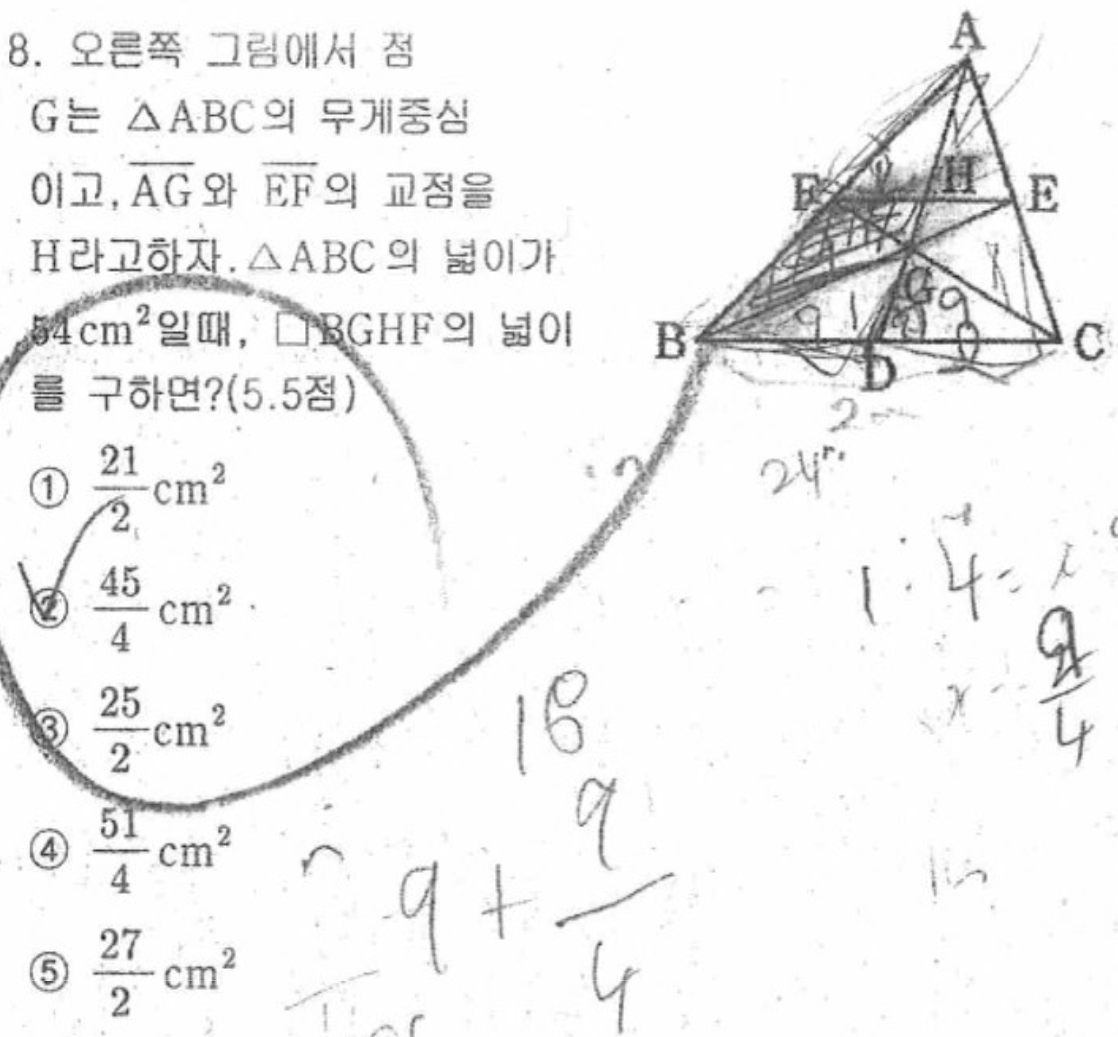 8. 오른쪽 그림에서 점
G는 △ABC의 무게중심
이고, AG와 EF의 교점을
H라고하자. △ABC의 넓이가
54cm²일때, □BGHF의 넓이
를 구하면?(5.5점)
① 21/2 cm²
② 45/4 cm²
③ 25/2 cm²
④ 51/4 cm²
⑤ 27/2 cm²
A
F H E
G
B D C
9 9
24
1 : 4 =
9/4
18
9 + 9/4